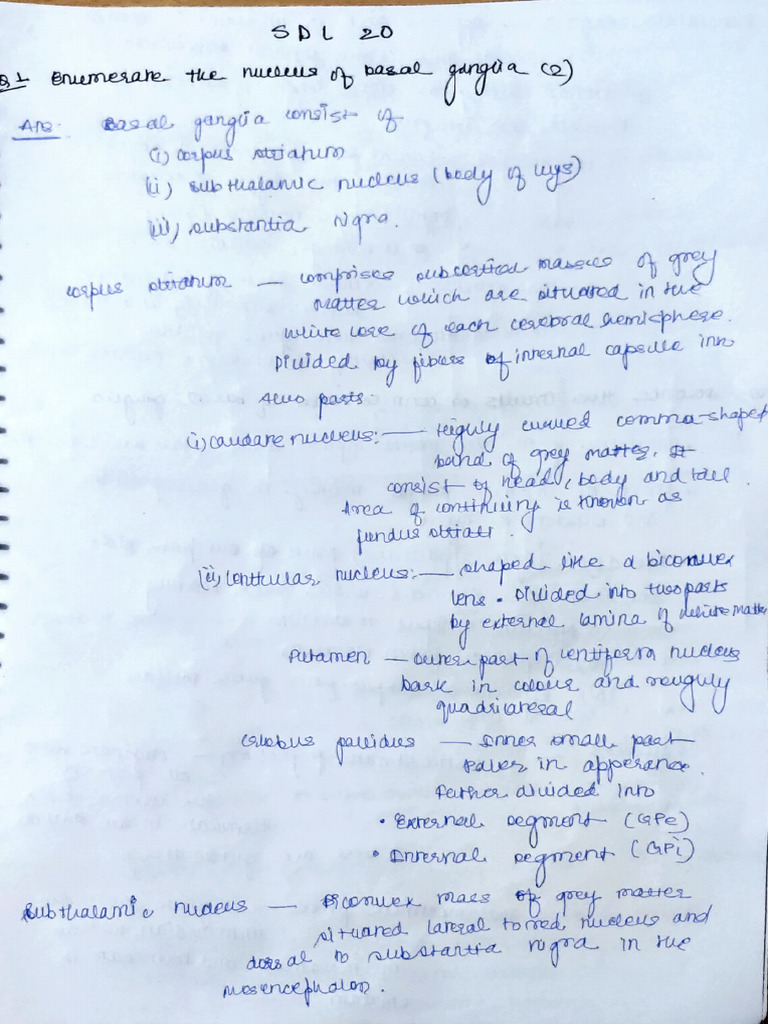 SDL 20
Q1 Enumerate the nucleus of basal ganglia (2)
Ans: Basal ganglia consist of
(i) corpus striatum
(ii) subthalamic nucleus (body of luys)
(iii) substantia nigra.
corpus striatum — comprises subcortical masses of grey
matter which are situated in the
white core of each cerebral hemisphere.
Divided by fibers of internal capsule into
two parts.
(i) caudate nucleus: — Highly curved comma-shaped
band of grey matter. It
consist of head, body and tail.
Area of continuity is known as
fundus striati.
(ii) lentitular nucleus: — shaped like a biconvex
lens. Divided into two parts
by external lamina of white matter
Putamen — outer part of lentiform nucleus
Dark in colour and roughly
quadrilateral
Globus pallidus — Inner small part
Paler in apperance.
Futher divided into
• External segment (GPe)
• Internal segment (GPi)
Subthalamic nucleus — Biconvex mass of grey matter
situated lateral to red nucleus and
dorsal to substantia nigra in the
mesencephalon.